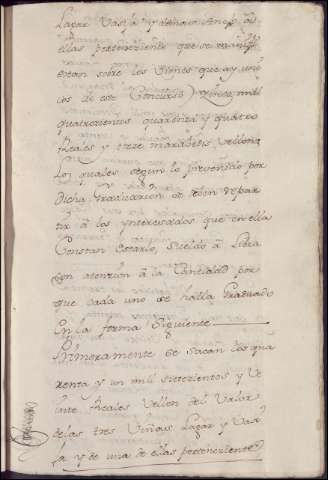 Lagar Vasija y demas anejo a
ellas perteneciente que se manifi
estan sobre los Vienes que ay uni
cos de este Concurso
quatrocientos quarenta y quatro
Reales y trese maravedis Vellon
los quales segun lo prevenido por
dicha Graduacion se deven repar
tir â los Ynteresados que en ella
Constan Lotario, Sueldo â Libra
con atencion â la Cantidad por
que cada uno se halla Graduado
En la forma Siguiente
Primeramente se sacan los qua
renta y un mil setecientos y Ve
inte Reales Vellon del Valor
de las tres Viñas Lagar y Vasi
ja y de una de ellas perteneciente